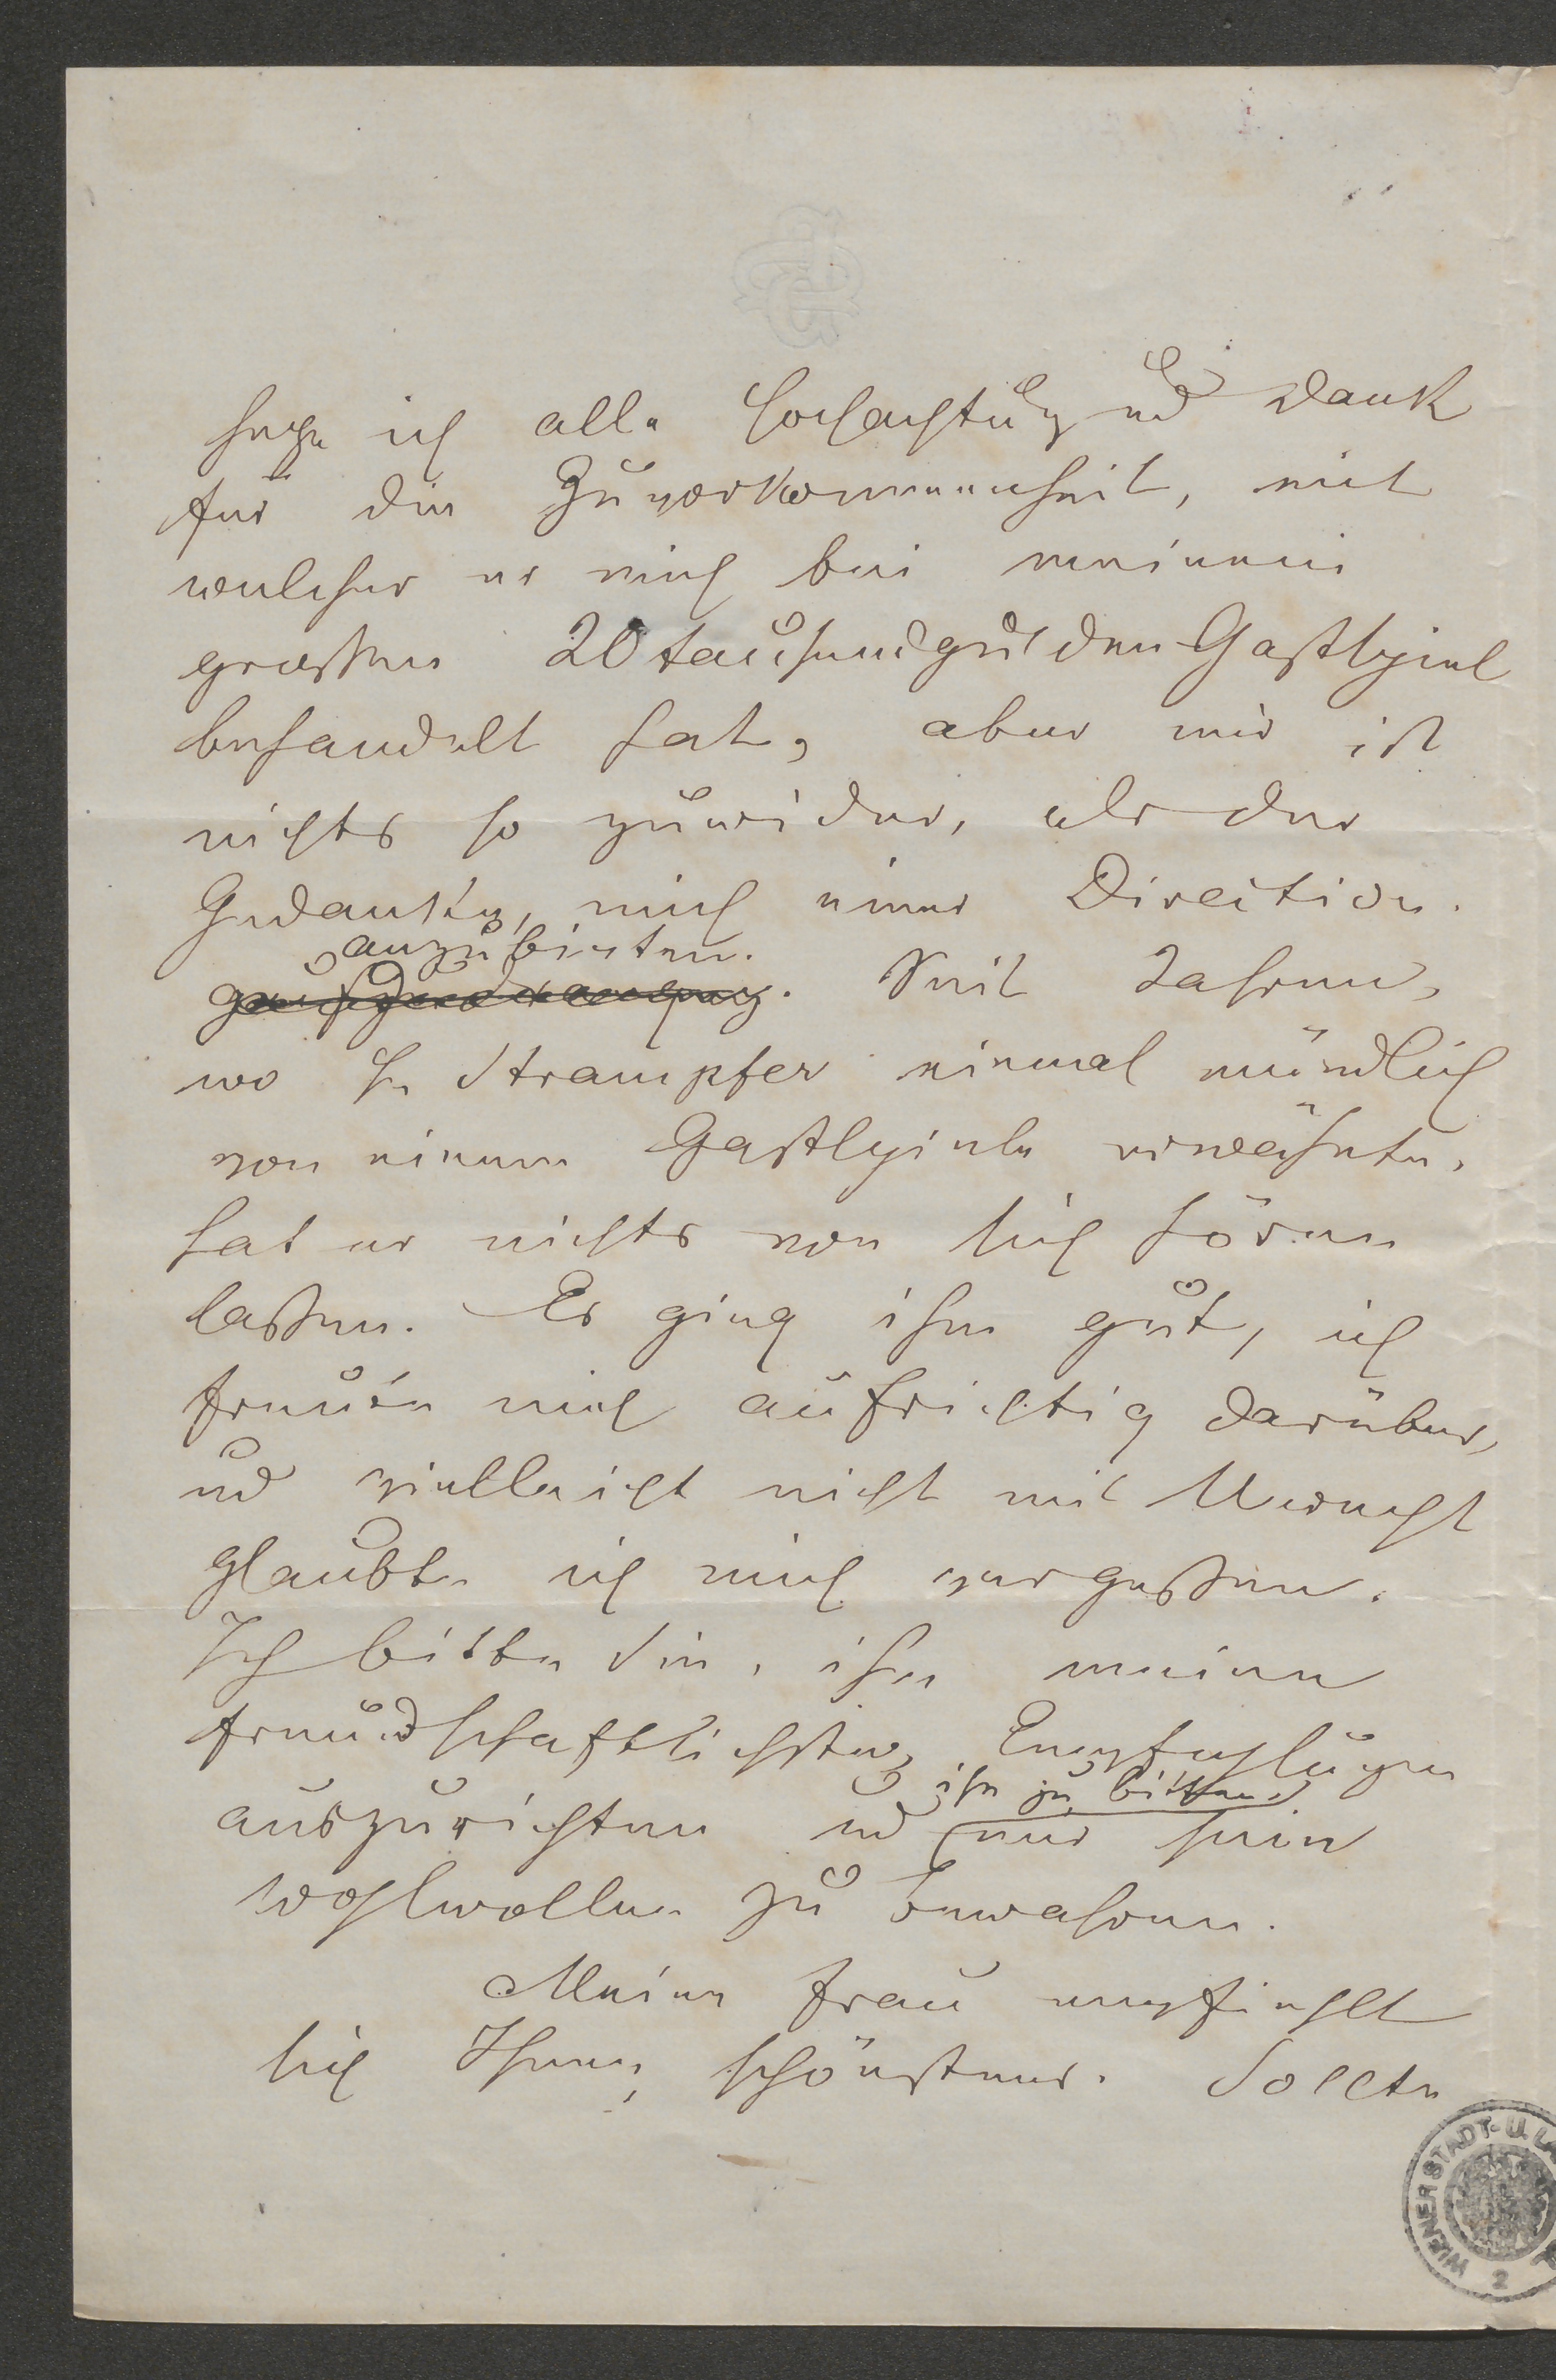 hege ich alle Hochachtung und Dank
für die Zuvorkommenheit, mit
welcher er mich bei meinem
großen 20 tausendgulden Gastspiel
behandelt hat, aber mir ist
nichts so zuwider, als der
Gedanke, mich einer Direction
anzubieten.
Seit Jahren,
wo H. Strampfer einmal mündlich
von einem Gastspiele erwähnte,
hat er nichts von sich hören
lassen. Es ging ihm gut, ich
freute mich aufrichtig darüber,
und vielleicht nicht mit Unrecht
glaubte ich mich vergessen.
Ich bitte Sie, ihm meine
freundschaftlichsten Empfehlungen
ihn zu bitten,
auszurichten und mir sein
Wohlwollen zu bewahren.
Meine Frau empfiehlt
sich Ihnen schönstens. Sollte
WIENER STADT- U. LA
2